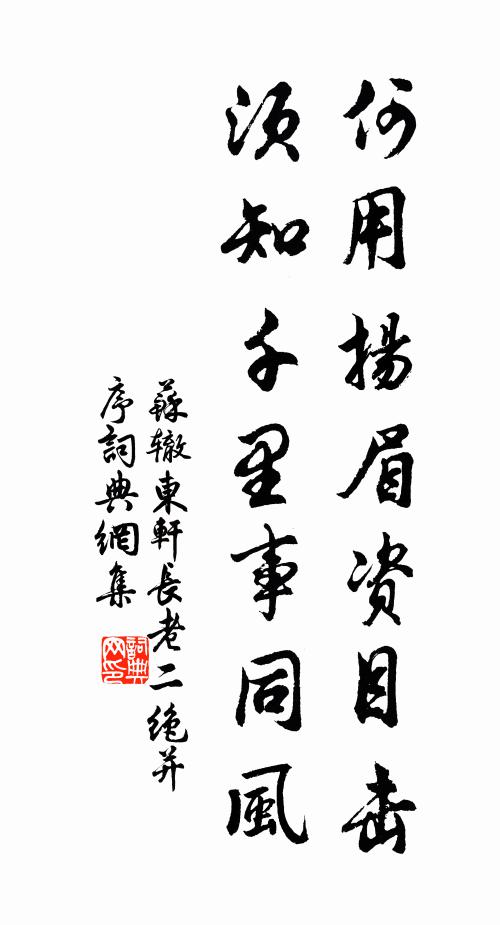 何用揚眉資目击
須知千里事同風
蘇辙東軒長老二絶并
序詞典網集
詞典网印